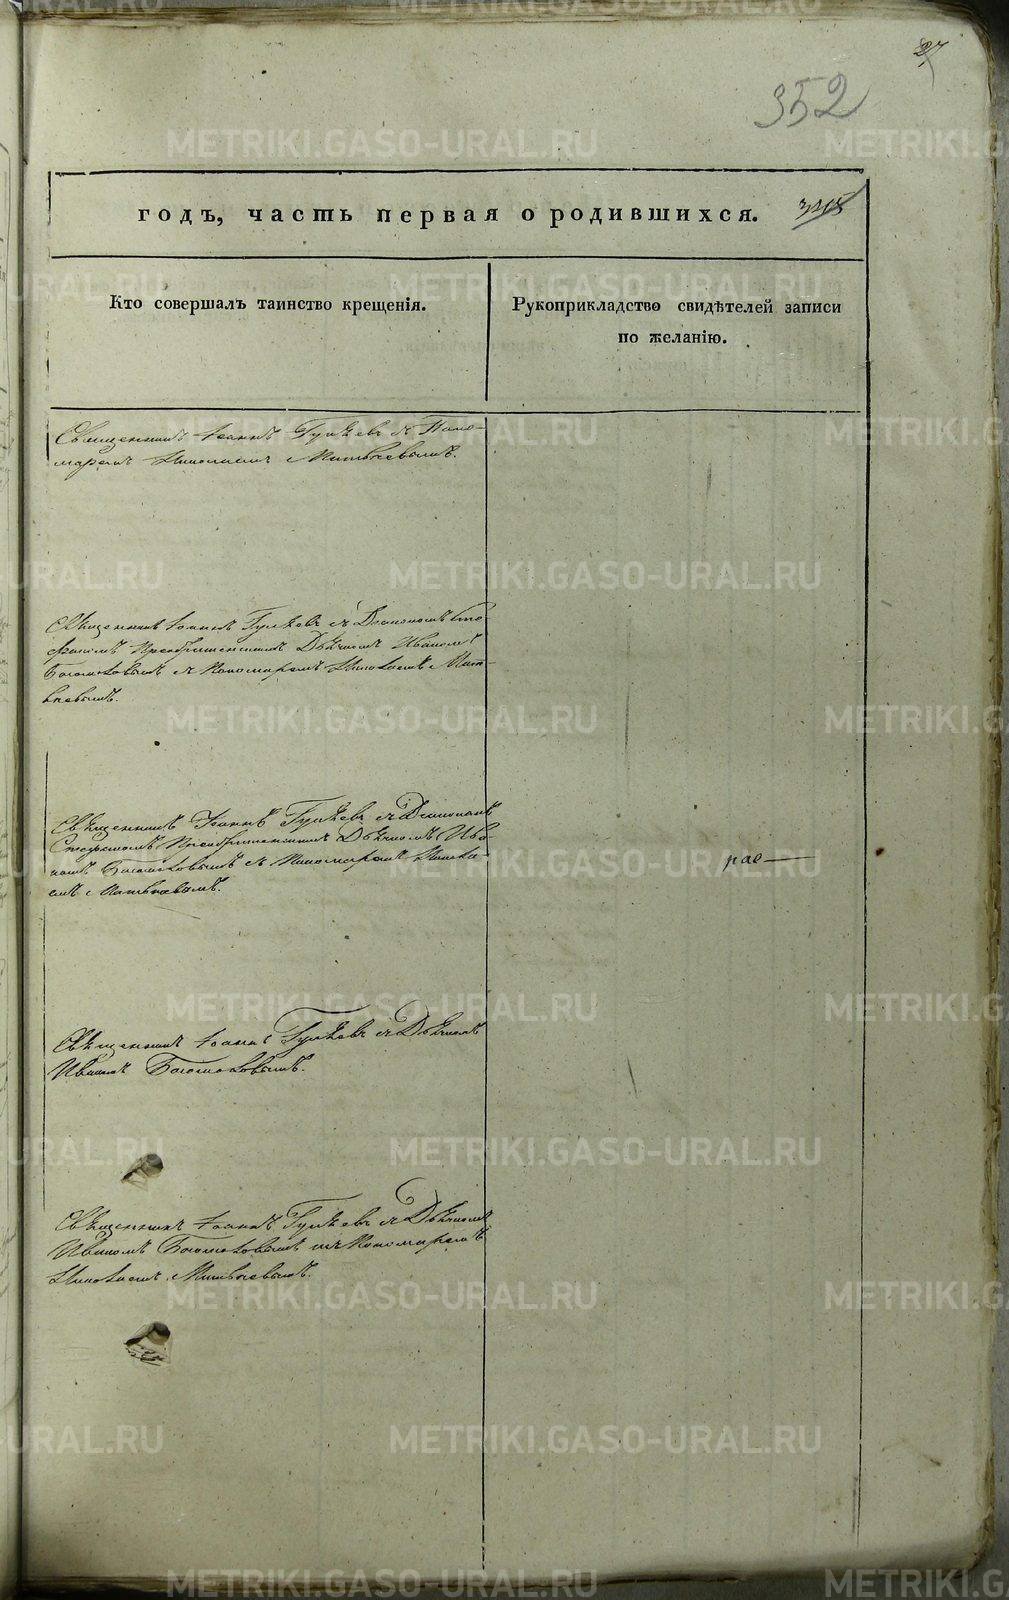 27
352
годъ, часть первая о родившихся. 348
Кто совершалъ таинство крещенія.
Рукоприкладство свидѣтелей записи
по желанію.
Священникъ Іоаннъ Гуляевъ съ Поно-
маремъ Николаемъ Матвѣевымъ.
Священникъ Іоаннъ Гуляевъ съ Діакономъ Сте-
фаномъ Преображенскимъ Дьячкомъ Иваномъ
Богомоловымъ съ Пономаремъ Николаемъ Мат-
вѣевымъ.
Священникъ Іоаннъ Гуляевъ съ Діакономъ
Стефаномъ Преображенскимъ Дьячкомъ Ива-
номъ Богомоловымъ съ Пономаремъ Никола-
емъ Матвѣевымъ.
рас—
Священникъ Іоаннъ Гуляевъ съ Дьячкомъ
Иваномъ Богомоловымъ.
Священникъ Іоаннъ Гуляевъ съ Дьячкомъ
Иваномъ Богомоловымъ и съ Пономаремъ
Николаемъ Матвѣевымъ.
METRIKI.GASO-URAL.RU